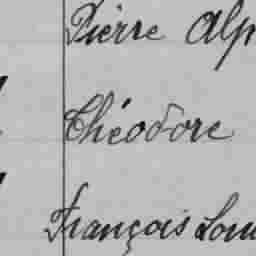 Pierre Alp
Théodore
François Lou